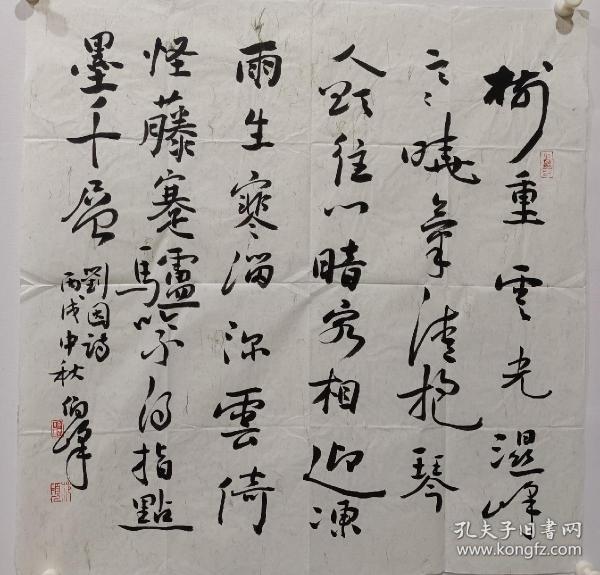 樹重雲光濕峰
高曉氣清抱琴
人往暗客相迎凍
雨生寒溜深雲倚
怪藤蹇驢吟得指點
墨千層
劉因詩
丙戌中秋 伯峰
孔夫子旧书网
www.kongfz.com